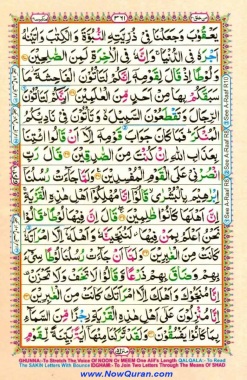 ٣٦١
يَعْقُوْبَ وَجَعَلْنَا فِيْ ذُرِّيَّتِهِ النُّبُوَّةَ وَالْكِتٰبَ وَاٰتَيْنٰهُ
اَجْرَهٗ فِي الدُّنْيَا ۚ وَاِنَّهٗ فِي الْاٰخِرَةِ لَمِنَ الصّٰلِحِيْنَ
وَلُوْطًا اِذْ قَالَ لِقَوْمِهٖٓ اِنَّكُمْ لَتَاْتُوْنَ الْفَاحِشَةَ مَا
سَبَقَكُمْ بِهَا مِنْ اَحَدٍ مِّنَ الْعٰلَمِيْنَ اَئِنَّكُمْ لَتَاْتُوْنَ
الرِّجَالَ وَتَقْطَعُوْنَ السَّبِيْلَ وَتَاْتُوْنَ فِيْ نَادِيْكُمُ
الْمُنْكَرَ فَمَا كَانَ جَوَابَ قَوْمِهٖٓ اِلَّآ اَنْ قَالُوا ائْتِنَا
بِعَذَابِ اللّٰهِ اِنْ كُنْتَ مِنَ الصّٰدِقِيْنَ قَالَ رَبِّ
انْصُرْنِيْ عَلَى الْقَوْمِ الْمُفْسِدِيْنَ وَلَمَّا جَآءَتْ رُسُلُنَآ
اِبْرٰهِيْمَ بِالْبُشْرٰى قَالُوْٓا اِنَّا مُهْلِكُوْٓا اَهْلِ هٰذِهِ الْقَرْيَةِ
اِنَّ اَهْلَهَا كَانُوْا ظٰلِمِيْنَ قَالَ اِنَّ فِيْهَا لُوْطًا قَالُوْا
نَحْنُ اَعْلَمُ بِمَنْ فِيْهَا لَنُنَجِّيَنَّهٗ وَاَهْلَهٗٓ اِلَّا امْرَاَتَهٗ
كَانَتْ مِنَ الْغٰبِرِيْنَ وَلَمَّآ اَنْ جَآءَتْ رُسُلُنَا لُوْطًا سِيْٓءَ
بِهِمْ وَضَاقَ بِهِمْ ذَرْعًا وَّقَالُوْا لَا تَخَفْ وَلَا تَحْزَنْ
اِنَّا مُنَجُّوْكَ وَاَهْلَكَ اِلَّا امْرَاَتَكَ كَانَتْ مِنَ الْغٰبِرِيْنَ
اِنَّا مُنْزِلُوْنَ عَلٰٓى اَهْلِ هٰذِهِ الْقَرْيَةِ رِجْزًا مِّنَ السَّمَآءِ
بِمَا كَانُوْا يَفْسُقُوْنَ وَلَقَدْ تَّرَكْنَا مِنْهَآ اٰيَةًۢ بَيِّنَةً لِّقَوْمٍ
GHUNNA:-To Stretch The Voice Of NOON Or MEEM One Alif's Length QALQALA:- To Read
The SAKIN Letters With Bounce IDGHAM:- To Join Two Letters Through The Means Of SHAD
www.NowQuran.com